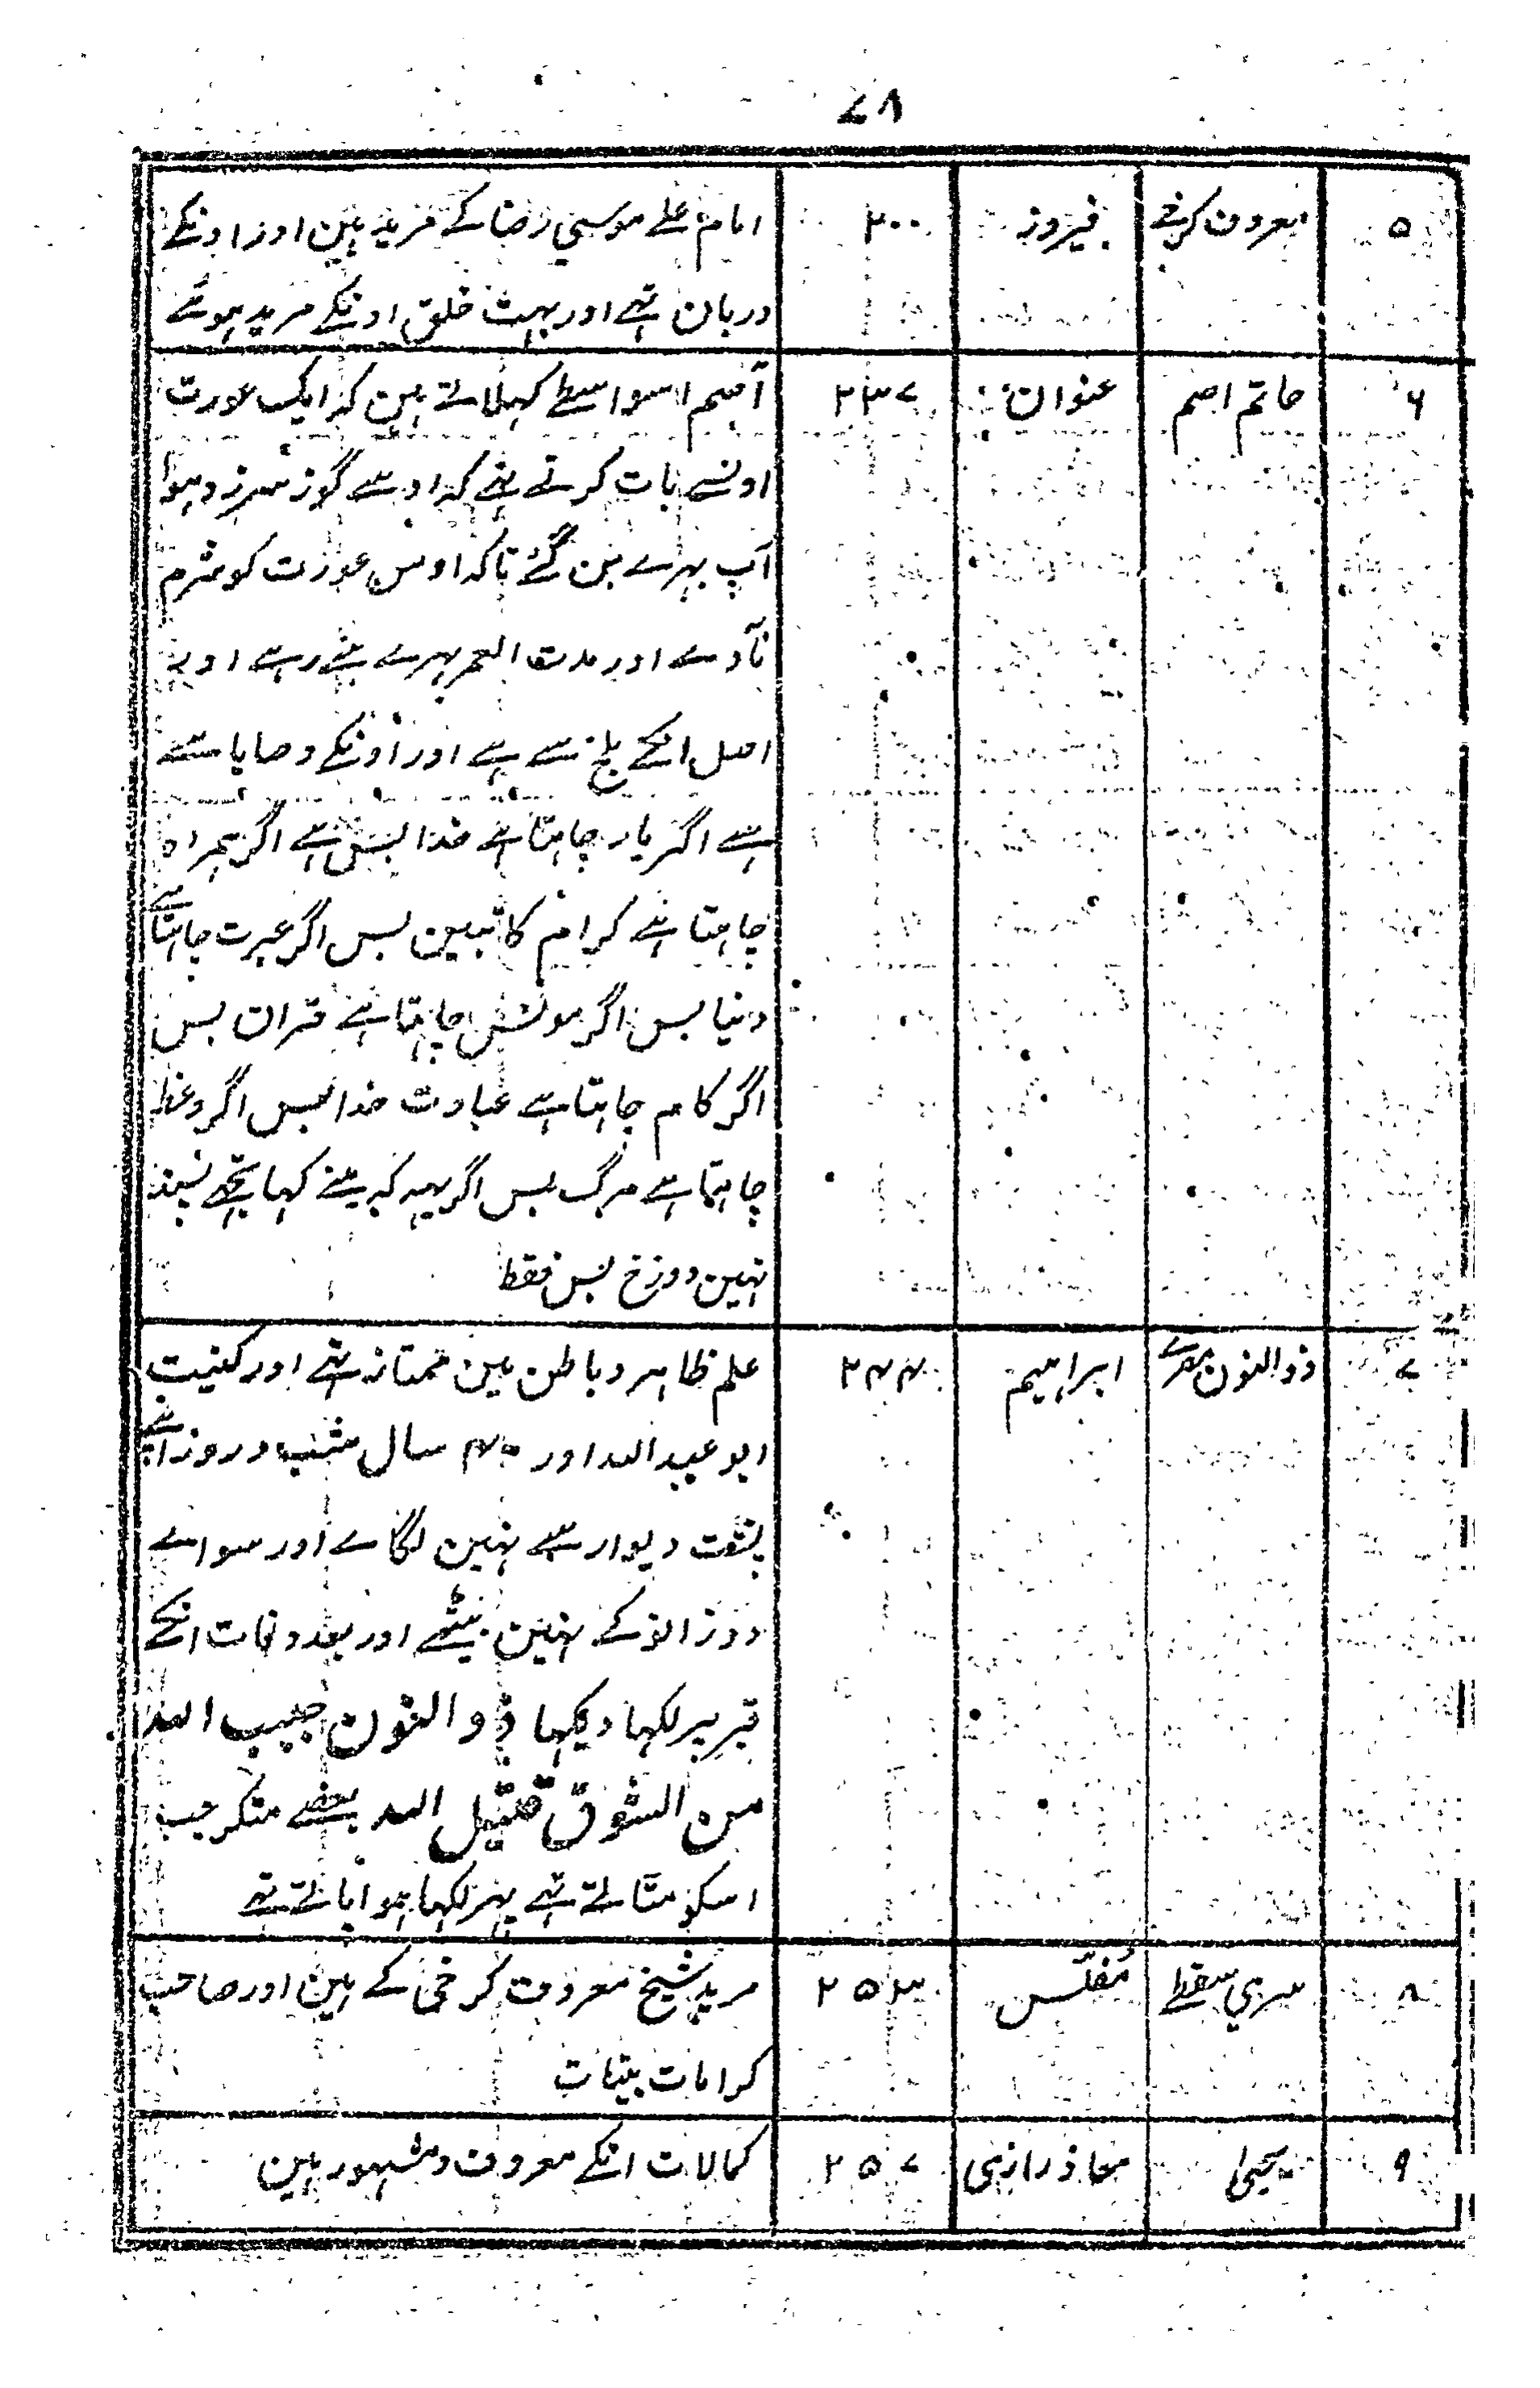 ۷۸
۵ معروف کرخے فیروز ۲۰۰ امام علے موسیٰ رضا کے مرید ہین اور اونکے
دربان تہے اور بہت خلق اونکے مرید ہوئے
۶ حاتم اصم عنوان ۲۳۷ اصم اسواسطے کہلاتے ہین کہ ایک عورت
اونسے بات کرتے تہے کہ اوسے گوز سرزد ہوا
آپ بہرے بن گئے تاکہ اوس عورت کو شرم
نآوے اور مدت العمر بہرے بنے رہے اور
اصل انکے بلخ سے ہے اور اونکے وصایا سے
ہے اگر یار چاہتا ہے خدا بس ہے اگر ہمراہ
چاہتا ہے کرام کاتبین بس اگر عبرت چاہتا ہے
دنیا بس اگر مونس چاہتا ہے قران بس
اگر کام چاہتا ہے عبادت خدا بس اگر وعظ
چاہتا ہے مرگ بس اگر یہہ کہ مینے کہا تجھے پسند
نہین دوزخ بس فقط
۷ ذوالنون مصرے ابراہیم ۲۴۴ علم ظاہر و باطن مین ممتاز تہے اور کنیت
ابو عبد اللہ اور ۴۰ سال شب و روز اپنے
پشت دیوار سے نہین لگاے اور سواے
دوزانو کے نہین بیٹھے اور بعد وفات انکے
قبر پر لکہا دیکہا ذو النون حبیب اللہ
من الشوق قتیل اللہ بعضے منکر جب
اسکو مٹاتے تہے پہر لکہا ہوا پاتے تہے
۸ سری سقطے مُفلّس ۲۵۳ مرید شیخ معروف کرخی کے ہین اور صاحب
کرامات بینات
۹ یحیی معاذ رازی ۲۵۷ کمالات انکے معروف و مشہور ہین